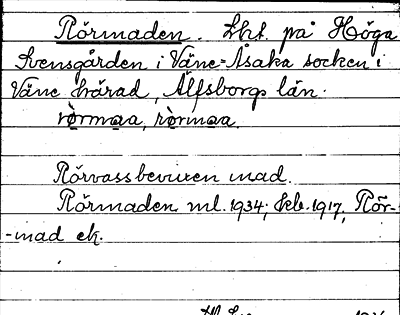 Rörmaden. Lht. på Höga
Svensgården i Väne-Åsaka socken i
Väne härad, Älfsborgs län.
Rörvassbevuxen mad.
Rörmaden ml. 1934; hb. 1917, Rör-
-mad ek.